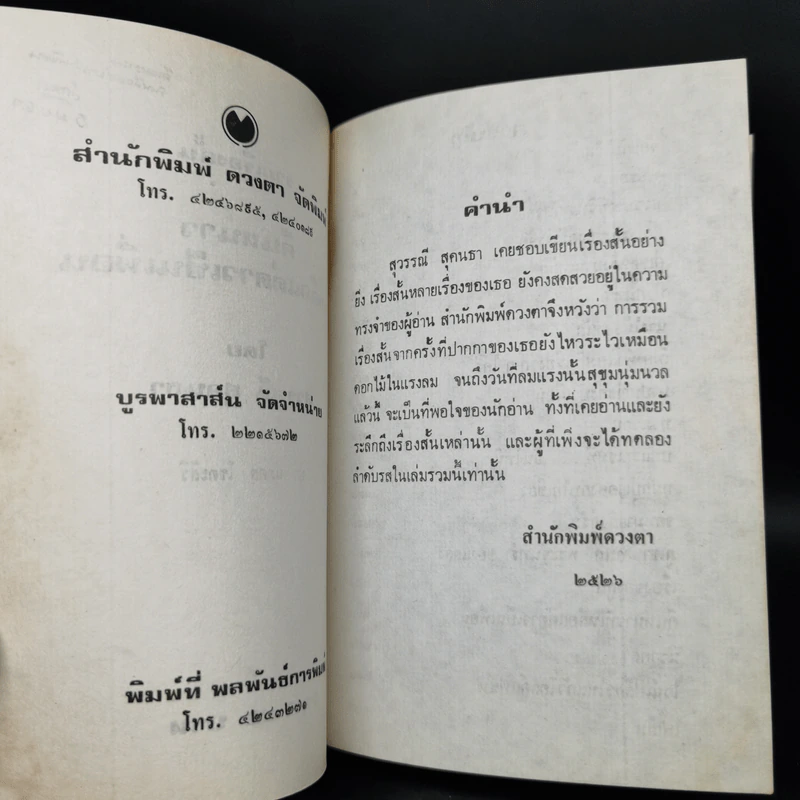 สำนักพิมพ์ ดวงตา จัดพิมพ์
โทร.
บูรพาสาส์น จัดจำหน่าย
โทร. ๒๒๑๕๖๗๒
พิมพ์ที่ พลพันธ์การพิมพ์
โทร. ๔๒๔๓๒๗๑
คำนำ
สุวรรณี สุคนธา เคยชอบเขียนเรื่องสั้นอย่าง
ยิ่ง เรื่องสั้นหลายเรื่องของเธอ ยังคงสดสวยอยู่ในความ
ทรงจำของผู้อ่าน สำนักพิมพ์ดวงตาจึงหวังว่า การรวม
เรื่องสั้นจากครั้งที่ปากกาของเธอยังไหวระไวเหมือน
ดอกไม้ในแรงลม จนถึงวันที่ลมแรงนั้นสุขุมนุ่มนวล
แล้วนี้ จะเป็นที่พอใจของนักอ่าน ทั้งที่เคยอ่านและยัง
ระลึกถึงเรื่องสั้นเหล่านั้น และผู้ที่เพิ่งจะได้ทดลอง
ลำดับรสในเล่มรวมนี้เท่านั้น
สำนักพิมพ์ดวงตา
๒๕๒๖